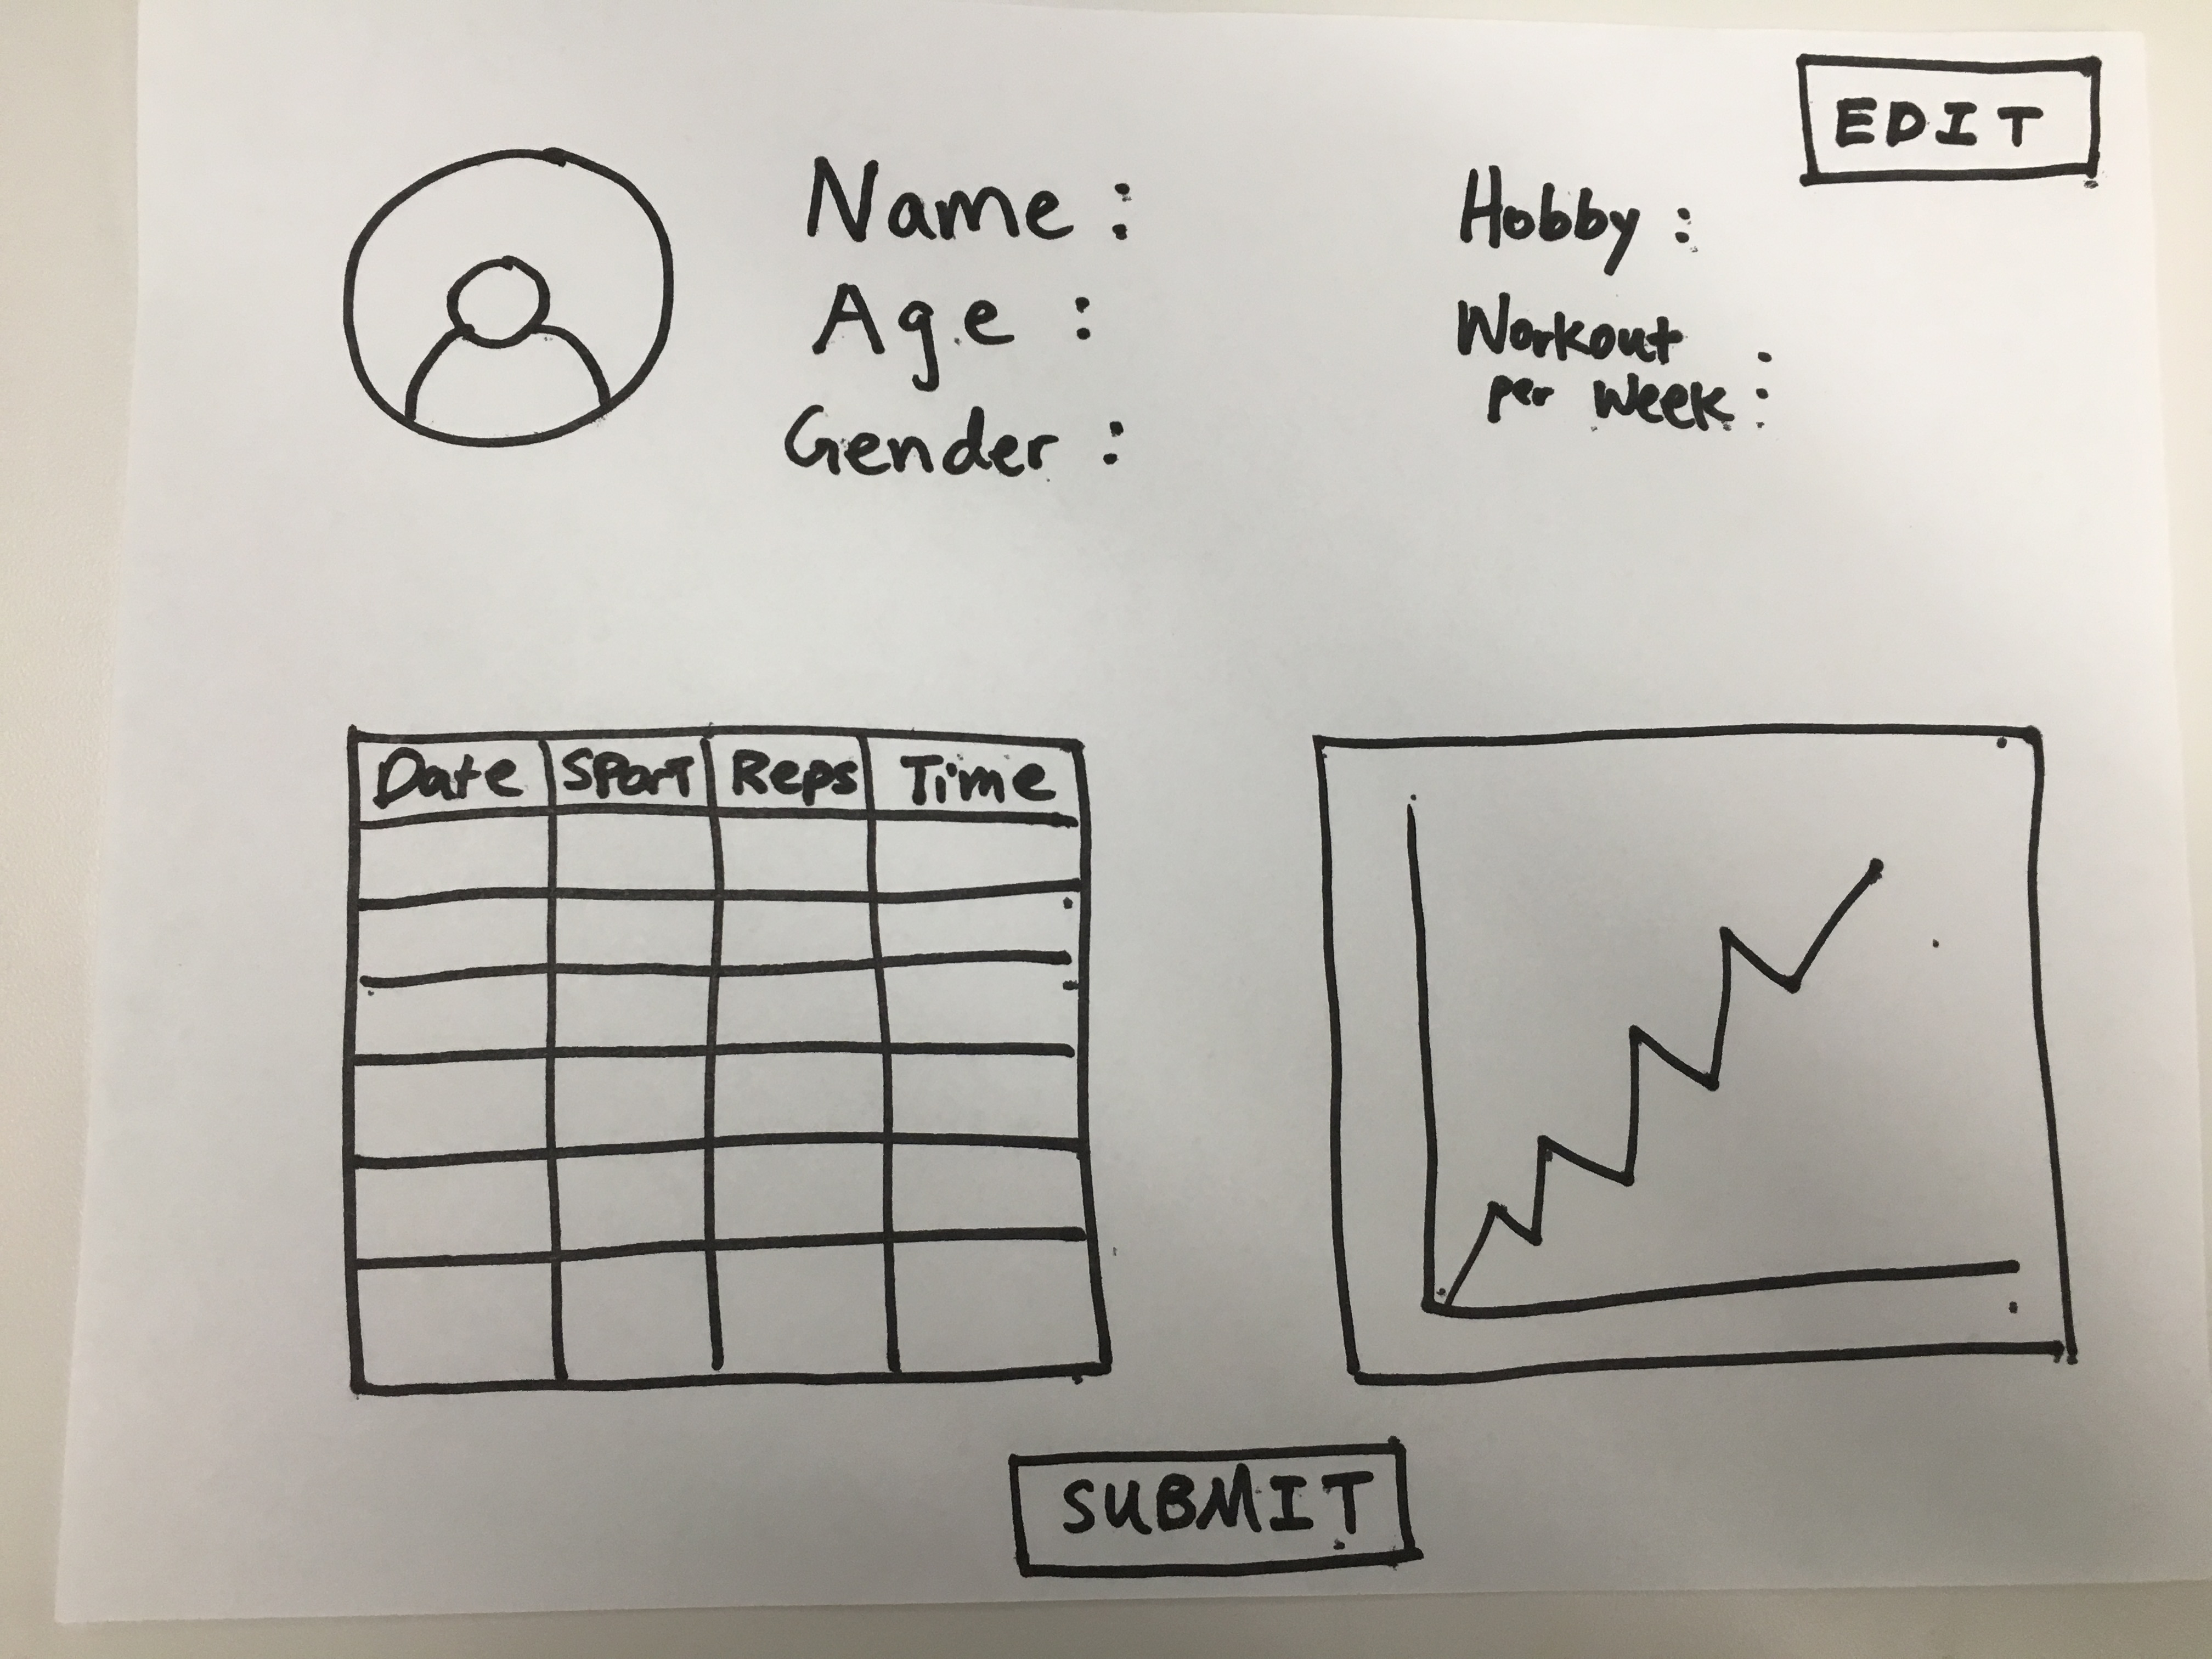 EDIT
Name :
Age :
Gender :
Hobby :
Workout
per week :
Date Sport Reps Time
SUBMIT